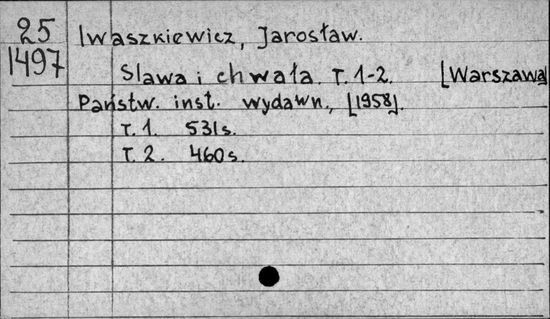 25
1497
Iwaszkiewicz, Jarosław.
Slawa i chwała. T. 1-2. [Warszawa]
Państw. inst. wydawn., [1958].
T. 1. 531s.
T. 2. 460s.